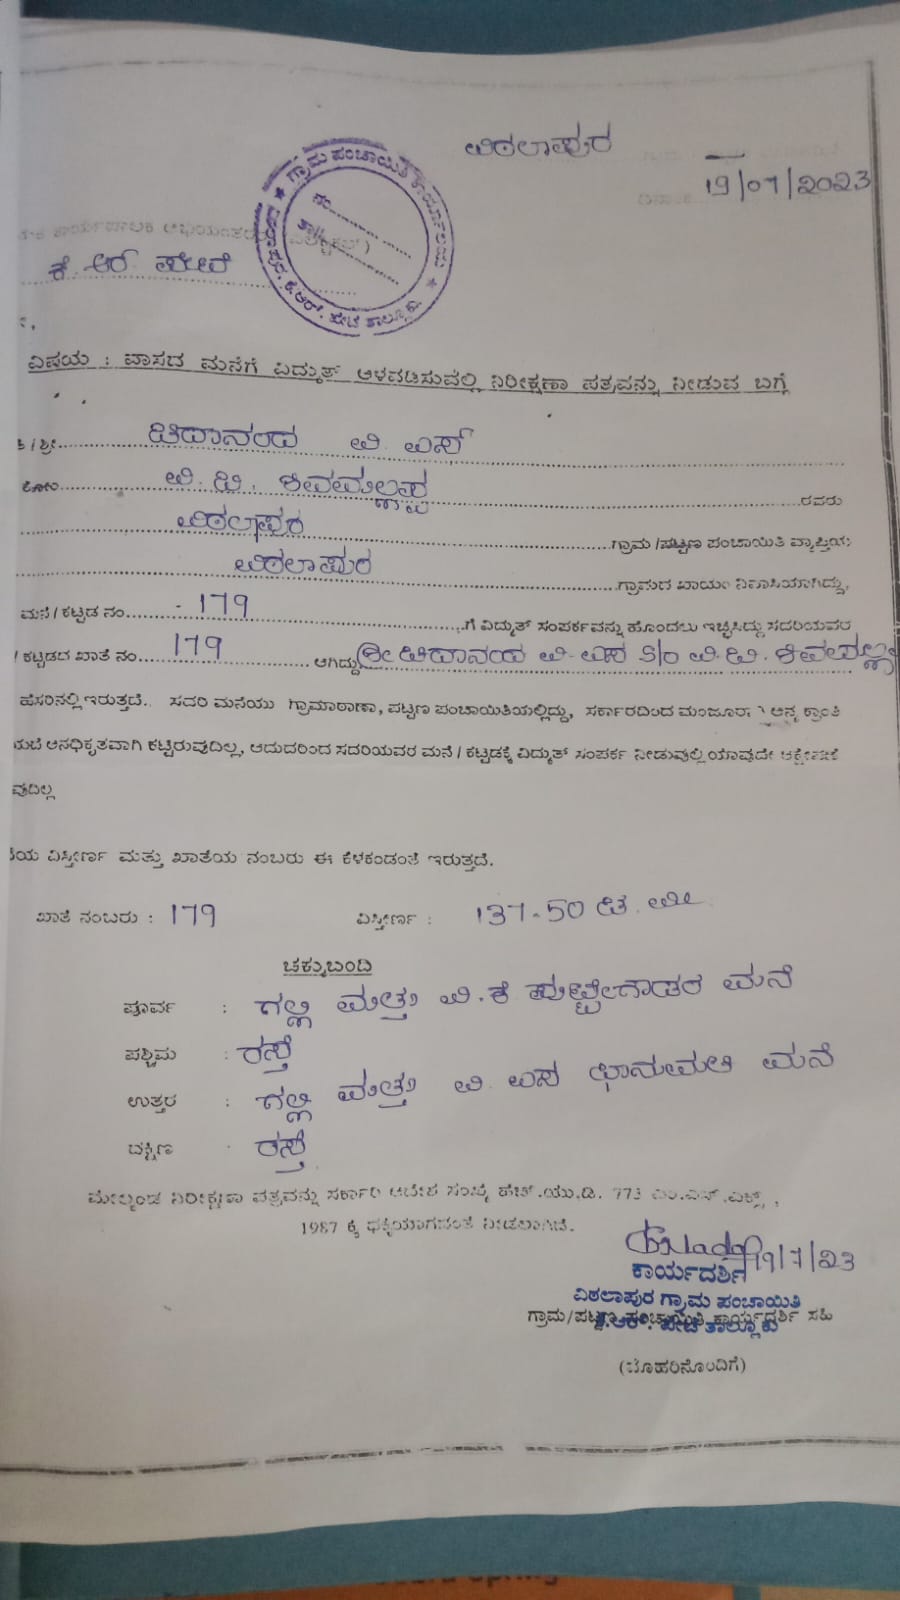 ವಿಠಲಾಪುರ
19/07/2023
ಗ್ರಾಮ ಪಂಚಾಯಿತಿ ಕಾರ್ಯಾಲಯ ★ ವಿಠಲಾಪುರ, ಕೆ.ಆರ್. ಪೇಟೆ ತಾಲ್ಲೂಕು ★
ನಂ.
ತಾ||
ಕಾರ್ಯಪಾಲಕ ಅಭಿಯಂತರರು
ಕೆ ಆರ್ ಪೇಟೆ
ವಿಷಯ : ವಾಸದ ಮನೆಗೆ ವಿದ್ಯುತ್ ಅಳವಡಿಸುವಲ್ಲಿ ನಿರೀಕ್ಷಣಾ ಪತ್ರವನ್ನು ನೀಡುವ ಬಗ್ಗೆ
/ ಶ್ರೀ ಚಿದಾನಂದ ವಿ. ಎಸ್
ಕೋಂ ವಿ. ಟಿ. ಶಿವಮಲ್ಲಪ್ಪ ರವರು
ವಿಠಲಾಪುರ ಗ್ರಾಮ /ಪಟ್ಟಣ ಪಂಚಾಯಿತಿ ವ್ಯಾಪ್ತಿಯ
ವಿಠಲಾಪುರ ಗ್ರಾಮದ ಖಾಯಂ ನಿವಾಸಿಯಾಗಿದ್ದು,
ಮನೆ / ಕಟ್ಟಡ ನಂ. 179 ಗೆ ವಿದ್ಯುತ್ ಸಂಪರ್ಕವನ್ನು ಹೊಂದಲು ಇಚ್ಛಿಸಿದ್ದು ಸದರಿಯವರ
/ ಕಟ್ಟಡದ ಖಾತೆ ನಂ. 179 ಆಗಿದ್ದು ಶ್ರೀ ಚಿದಾನಂದ ವಿ. ಎಸ್ S/o ವಿ. ಟಿ. ಶಿವಮಲ್ಲ
ಹೆಸರಿನಲ್ಲಿ ಇರುತ್ತದೆ. ಸದರಿ ಮನೆಯು ಗ್ರಾಮಠಾಣಾ, ಪಟ್ಟಣ ಪಂಚಾಯಿತಿಯಲ್ಲಿದ್ದು, ಸರ್ಕಾರದಿಂದ ಅನ್ಯ ಕ್ರಾಂತಿ
ಅನಧಿಕೃತವಾಗಿ ಕಟ್ಟಿರುವುದಿಲ್ಲ, ಆದುದರಿಂದ ಸದರಿಯವರ ಮನೆ / ಕಟ್ಟಡಕ್ಕೆ ವಿದ್ಯುತ್ ಸಂಪರ್ಕ ನೀಡುವಲ್ಲಿ ಯಾವುದೇ ಆಕ್ಷೇಪಣೆ
ವುದಿಲ್ಲ
ವಿಸ್ತೀರ್ಣ ಮತ್ತು ಖಾತೆಯ ನಂಬರು ಈ ಕೆಳಕಂಡಂತೆ ಇರುತ್ತದೆ.
ಖಾತೆ ನಂಬರು : 179 ವಿಸ್ತೀರ್ಣ : 137-50 ಚ. ಮೀ
ಚಕ್ಕುಬಂದಿ
ಪೂರ್ವ : ಗಲ್ಲಿ ಮತ್ತು ವಿ. ಕೆ ಪುಟ್ಟೇಗೌಡರ ಮನೆ
ಪಶ್ಚಿಮ : ರಸ್ತೆ
ಉತ್ತರ : ಗಲ್ಲಿ ಮತ್ತು ವಿ. ಎಸ್ ಭಾನುಮತಿ ಮನೆ
ದಕ್ಷಿಣ ರಸ್ತೆ
ಮೇಲ್ಕಂಡ ನಿರೀಕ್ಷಣಾ ಪತ್ರವನ್ನು ಸರ್ಕಾರಿ ಆದೇಶ ಸಂಖ್ಯೆ ಹೆಚ್.ಯು.ಡಿ. 773 ಎಂ.ಎನ್.ಎಕ್ಸ್,
1987 ಕ್ಕೆ ನೀಡಲಾಗಿದೆ.
19/7/23
ಕಾರ್ಯದರ್ಶಿ
ವಿಠಲಾಪುರ ಗ್ರಾಮ ಪಂಚಾಯಿತಿ
ಕೆ.ಆರ್. ಪೇಟೆ ತಾಲ್ಲೂಕು
ಗ್ರಾಮ/ಪಟ್ಟಣ ಪಂಚಾಯಿತಿ ಕಾರ್ಯದರ್ಶಿ ಸಹಿ
(ಮೊಹರಿನೊಂದಿಗೆ)